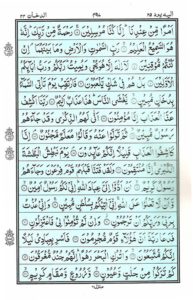 اليه يرد ٢٥ ٤٩٨ الدخان ٤٤
اَمْرًا مِّنْ عِنْدِنَا اِنَّا كُنَّا مُرْسِلِيْنَ رَحْمَةً مِّنْ رَّبِّكَ اِنَّهٗ
هُوَ السَّمِيْعُ الْعَلِيْمُ رَبِّ السَّمٰوٰتِ وَالْاَرْضِ وَمَا بَيْنَهُمَا اِنْ
كُنْتُمْ مُّوْقِنِيْنَ لَاۤ اِلٰهَ اِلَّا هُوَ يُحْيٖ وَيُمِيْتُ رَبُّكُمْ وَرَبُّ اٰبَآئِكُمُ
الْاَوَّلِيْنَ بَلْ هُمْ فِيْ شَكٍّ يَّلْعَبُوْنَ فَارْتَقِبْ يَوْمَ تَاْتِي السَّمَآءُ
بِدُخَانٍ مُّبِيْنٍ يَّغْشَى النَّاسَ هٰذَا عَذَابٌ اَلِيْمٌ رَبَّنَا اكْشِفْ
عَنَّا الْعَذَابَ اِنَّا مُؤْمِنُوْنَ اَنّٰى لَهُمُ الذِّكْرٰى وَقَدْ جَآءَهُمْ
رَسُوْلٌ مُّبِيْنٌ ثُمَّ تَوَلَّوْا عَنْهُ وَقَالُوْا مُعَلَّمٌ مَّجْنُوْنٌ اِنَّا
كَاشِفُوا الْعَذَابِ قَلِيْلًا اِنَّكُمْ عَآئِدُوْنَ يَوْمَ نَبْطِشُ الْبَطْشَةَ
الْكُبْرٰى اِنَّا مُنْتَقِمُوْنَ وَلَقَدْ فَتَنَّا قَبْلَهُمْ قَوْمَ فِرْعَوْنَ وَجَآءَهُمْ
رَسُوْلٌ كَرِيْمٌ اَنْ اَدُّوْا اِلَيَّ عِبَادَ اللّٰهِ اِنِّيْ لَكُمْ رَسُوْلٌ اَمِيْنٌ
وَّاَنْ لَّا تَعْلُوْا عَلَى اللّٰهِ اِنِّيْ اٰتِيْكُمْ بِسُلْطٰنٍ مُّبِيْنٍ وَاِنِّيْ عُذْتُ
بِرَبِّيْ وَرَبِّكُمْ اَنْ تَرْجُمُوْنِ وَاِنْ لَّمْ تُؤْمِنُوْا لِيْ فَاعْتَزِلُوْنِ
فَدَعَا رَبَّهٗ اَنَّ هٰٓؤُلَآءِ قَوْمٌ مُّجْرِمُوْنَ فَاَسْرِ بِعِبَادِيْ لَيْلًا
اِنَّكُمْ مُّتَّبَعُوْنَ وَاتْرُكِ الْبَحْرَ رَهْوًا اِنَّهُمْ جُنْدٌ مُّغْرَقُوْنَ
كَمْ تَرَكُوْا مِنْ جَنّٰتٍ وَّعُيُوْنٍ وَّزُرُوْعٍ وَّمَقَامٍ كَرِيْمٍ
منزل٦